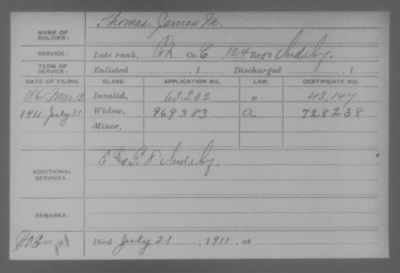 NAME OF SOLDIER: Thomas James M.
SERVICE: Late rank, Co. C, 124 Reg't
TERM OF SERVICE: Enlisted , 1 Discharged , 1
DATE OF FILING. CLASS. APPLICATION NO. LAW. CERTIFICATE NO.
Mar Invalid, 63,202 43,147
1911 July 31 Widow, 969383 a 728238
Minor,
ADDITIONAL SERVICES: E
REMARKS:
Died July 21 , 1911, at